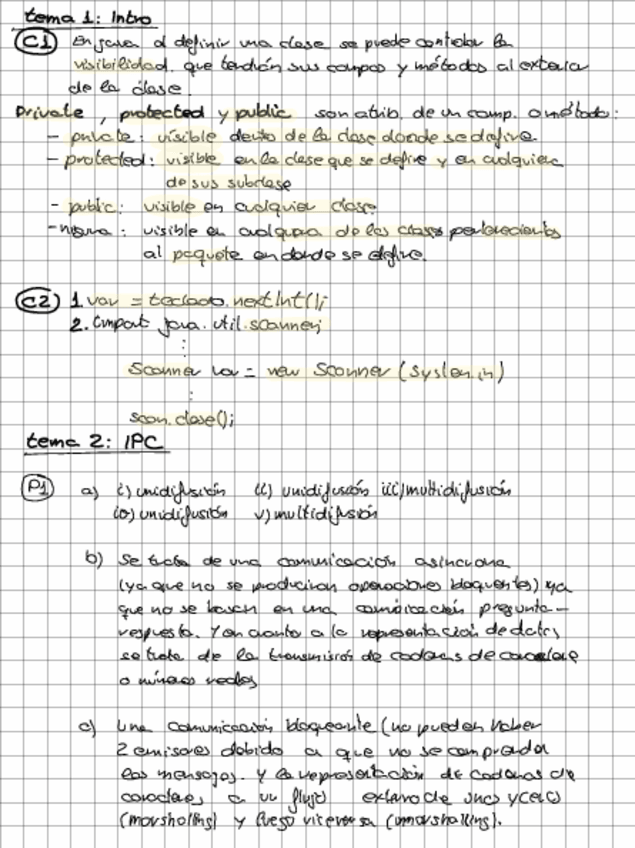 tema 1: Intro
C1 En java al definir una clase se puede controlar la
visibilidad que tendrán sus campos y métodos al exterior
de la clase.
Private, protected y public son atrib. de un comp. o método:
- private: visible dentro de la clase donde se define.
- protected: visible en la clase que se define y en cualquiera
de sus subclase
- public: visible en cualquier clase
- : visible en cualquiera de las clases pertenecientes
al paquete en donde se define.
C2 1. var = teclado.nextInt();
2. Import java.util.scanner;
:
Scanner = new Scanner (System.in)
:
scan.close();
tema 2: IPC
P1 a) i) unidifusión ii) unidifusión iii) multidifusión
iv) unidifusión v) multidifusión
b) Se trata de una comunicación asíncrona
(ya que no se producirán operaciones bloquentes) ya
que no se basan en una comunicación pregunta-
respuesta. Y en cuanto a la representación de datos
se trata de la transmisión de cadenas de caractere
o números reales
c) Una comunicación bloqueante (no pueden haber
2 emisores debido a que no se comprenden
los mensajes. Y la representación de cadenas de
caracteres a un flujo externo de unos y ceros
(marshalling) y luego viceversa (unmarshalling).